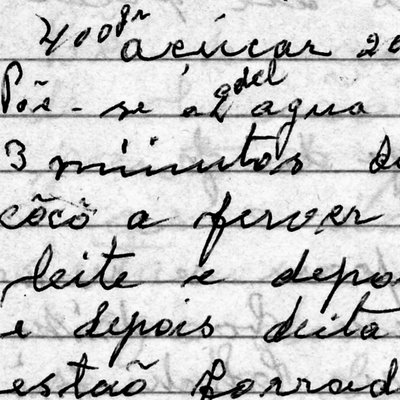 400gr açúcar 20
Põe-se a água
3 minutos
côcô a ferver
leite e depo
e depois deita
estaõ forrad